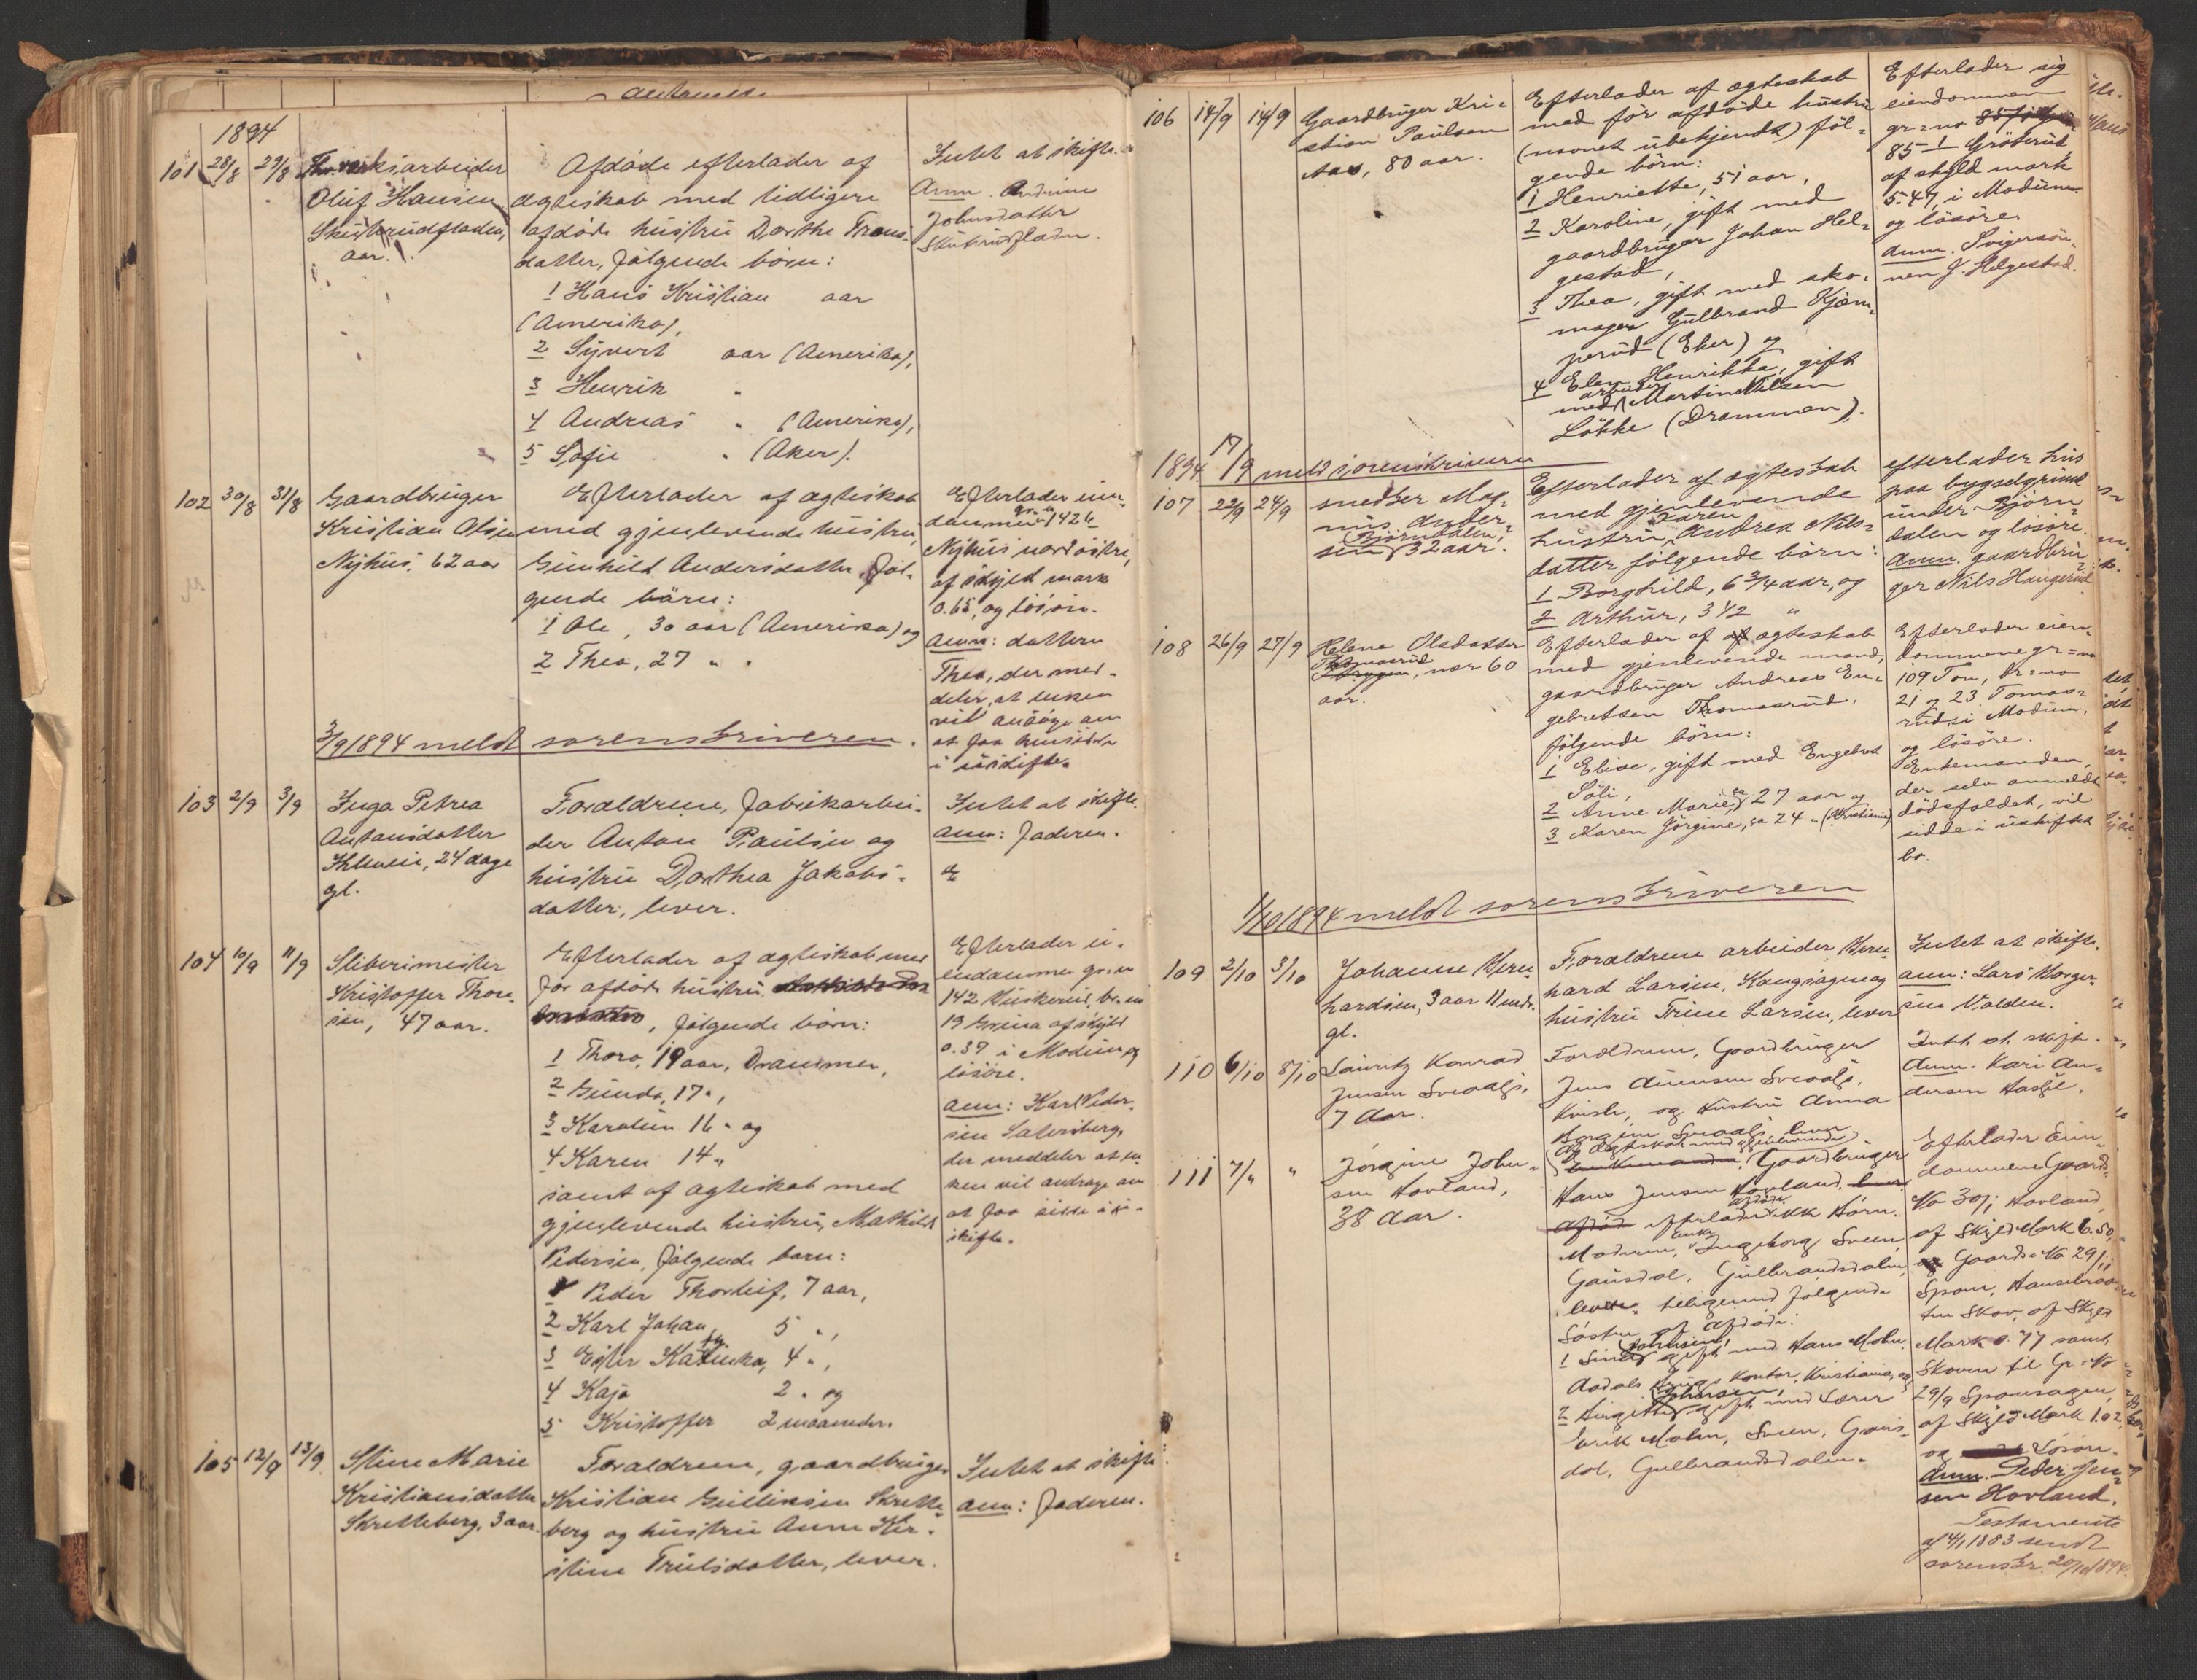 1894
101 28/8 29/8
arbeider
Oluf Hansen
Skuterudfladen,
aar.
Afdøde efterlader af
ægteskab med tidligere
afdøde hustru Dorthe Frans-
datter, følgende børn:
1 Hans Kristian aar
(Amerika),
2 Syvert aar (Amerika),
3 Henrik "
4 Andreas " (Amerika),
5 Sofie " (Aker).
Intet at skifte.
Anm. Andrine
Johnsdatter
Skuterudfladen.
102 30/8 31/8
Gaardbruger
Kristian Olsen
Nyhus, 62 aar
Efterlader af ægteskab
med gjenlevende hustru,
Gunhild Andersdatter, føl-
gende børn:
1 Ole, 30 aar (Amerika) og
2 Thea, 27 " .
Efterlader eien-
dommen gr. no 142
Nyhus nordøstre,
af skyld mark
0.65, og løsøre.
Anm: datteren
Thea, der med-
deler, at enken
vil ansøge om
at faa hensidde
i uskifte.
3/9 1894 meldt sorenskriveren.
103 2/9 3/9
Inga Petrea
Antonsdatter
24 dage
gl.
Forældrene, fabrikarbei-
der Anton Paulsen og
hustru Dorthea Jakobs-
datter, lever.
Intet at skifte.
Anm: faderen.
104 10/9 11/9
Sliberimester
Kristoffer Thore-
sen, 47 aar.
Efterlader af ægteskab med
før afdøde hustru
, følgende børn:
1 Thora, 19 aar, Drammen,
2 Gunda, 17 ",
3 Karoline 16 " og
4 Karen 14 "
samt af ægteskab med
gjenlevende hustru, Mathilde
Pedersen, følgende børn:
1 Peder Thorleif, 7 aar,
2 Karl Johan, 5 ",
3 Ester Katinka, 4 ",
4 Kaja 2 " og
5 Kristoffer 2 maaneder.
Efterlader ei-
endommen gr. no
142 br. no
19 Grina af skyld
0.39 i Modum og
løsøre.
Anm: Karl Peder-
sen Satersberg,
der meddeler at en-
ken vil andrage om
at faa sidde i u-
skifte.
105 12/9 13/9
Stine Marie
Kristiansdatter
Skretteberg, 3 aar.
Forældrene, gaardbruger
Kristian Gulliksen Skrette-
berg og hustru Anne Kir-
stine Trulsdatter, lever.
Intet at skifte
Anm: faderen.
106 14/9 14/9
Gaardbruger Kri-
stian Paulsen
Aas, 80 aar.
Efterlader af ægteskab
med før afdøde hustru
(navnet ubekjendt) føl-
gende børn:
1 Henriette, 51 aar,
2 Karoline, gift med
gaardbruger Johan Hel-
gestad,
3 Thea, gift med sko-
mager Gulbrand Kjøm-
perud (Eker) og
4 Elen Henrikka, gift
med arbeider Martin Nilsen
Løkke (Drammen).
Efterlader sig
eiendommen
gr=no
85-1 Grøterud
af skyld mark
5.47, i Modum
og løsøre.
Anm. Svigersøn-
nen J. Helgestad.
1894 17/9 meldt sorenskriveren
107 22/9 24/9
smed Mag-
nus Ander-
sen Bjørndalen, 32 aar.
Efterlader af ægteskab
med gjenlevende
hustru Karen Andrea Nils-
datter følgende børn:
1 Borghild, 6 3/4 aar, og
2 Arthur, 3 1/2 "
efterlader hus
paa bygselgrund
under Bjørn-
dalen og løsøre.
Anm. gaardbru-
ger Nils Haugerud
108 26/9 27/9
Helene Olsdatter
Thomasrud, nær 60
aar.
Efterlader af ægteskab
med gjenlevende mand,
gaardbruger Andreas En-
gebretsen Thomasrud,
følgende børn:
1 Elise, gift med Engebret
Søli,
2 Anne Marie, ca 27 aar og
3 Karen Jørgine, ca 24 " (Kristiania)
Efterlader eien-
dommene gr=no
109 br=no
21 og 23 Tomas-
rud, i Modum,
og løsøre.
Enkemanden,
der selv anmeldte
dødsfaldet, vil
sidde i uskiftet
bo.
1/10 1894 meldt sorenskriveren
109 2/10 3/10
Johanne Bern-
hardsen, 3 aar 11 mdr.
gl.
Forældrene arbeider Bern-
hard Larsen, Kongsagen og
hustru Trine Larsen, lever
Intet at skifte.
Anm: Lars
sen Volden.
110 6/10 8/10
Lauritz Konrad
Jensen Sveaas,
7 Aar.
Forældrene, Gaardbruger
Jens
og Hustru Anna
lever
Intet at skifte.
Anm. Kari An-
dersen
111 7/" "
Jørgine John-
sen Hovland,
38 Aar.
Af ægteskab med gjenlevende
Gaardbruger
Hans Jensen Hovland
efterlader afdøde ikke Børn.
Moderen, Enke Ingeborg Sveen,
Gausdal, Gulbrandsdalen,
lever. tilligemed følgende
Søstre af afdøde:
1 Johnsen, gift med Hans Molin,
Kontor, Kristiania, og
2 Birgitte Johnsen, gift med Lærer
Erik Molin, Sveen, Gaus-
dal, Gulbrandsdalen.
Efterlader Eien-
dommene Gaards-
No 30/1 Hovland
af Skyld Mark 6.50,
Gaards=No 29/11
Skov, af Skyld
Mark 0.77 samt
Skoven til Gr=No
29/9 Sponsagen,
af Skyld Mark 1.02
og Løsøre.
Anm. Peder Jen-
sen Hovland.
Testamente
af 14/1 1883 sendt
sorenskr. 20/10 1894.